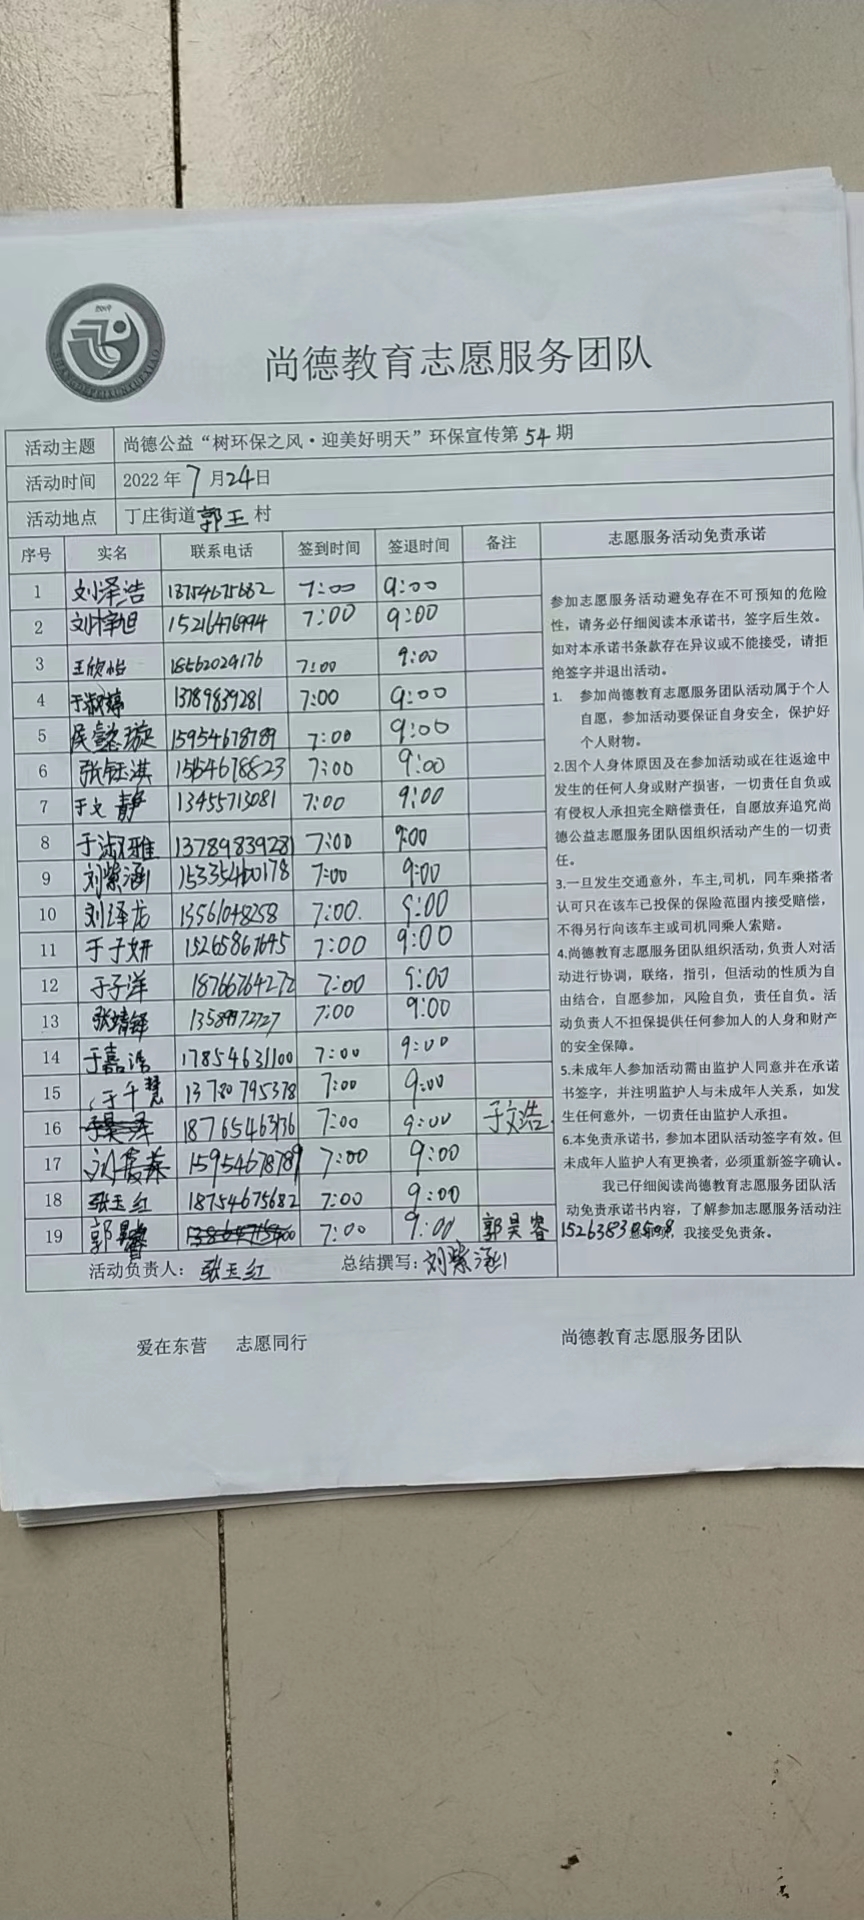 尚德教育志愿服务团队
活动主题 尚德公益“树环保之风·迎美好明天”环保宣传第54期
活动时间 2022年7月24日
活动地点 丁庄街道郭王村
序号 实名 联系电话 签到时间 签退时间 备注
1 刘泽浩 18754675682 7:00 9:00
2 15216476994 7:00 9:00
3 王欣怡 18562029176 7:00 9:00
4 于淑婷 13789839281 7:00 9:00
5 侯懿璇 15954678789 7:00 9:00
6 张钰淇 7:00 9:00
7 于文静 13455713081 7:00 9:00
8 于淑雅 13789839281 7:00 9:00
9 刘紫涵 7:00 9:00
10 刘泽龙 15561048258 7:00 9:00
11 于子妍 15265867645 7:00 9:00
12 于子洋 18766764272 7:00 9:00
13 张靖铎 13589972727 7:00 9:00
14 于嘉浩 17854631100 7:00 9:00
15 于千慧 13780795378 7:00 9:00
16 18765463136 7:00 9:00 于文浩
17 15954678789 7:00 9:00
18 张玉红 18754675682 7:00 9:00
19 郭昊睿 7:00 9:00 郭昊睿
活动负责人：张玉红 总结撰写：刘紫涵
志愿服务活动免责承诺
参加志愿服务活动避免存在不可预知的危险
性，请务必仔细阅读本承诺书，签字后生效。
如对本承诺书条款存在异议或不能接受，请拒
绝签字并退出活动。
1. 参加尚德教育志愿服务团队活动属于个人
自愿，参加活动要保证自身安全，保护好
个人财物。
2.因个人身体原因及在参加活动或在往返途中
发生的任何人身或财产损害，一切责任自负或
有侵权人承担完全赔偿责任，自愿放弃追究尚
德公益志愿服务团队因组织活动产生的一切责
任。
3.一旦发生交通意外，车主,司机，同车乘搭者
认可只在该车已投保的保险范围内接受赔偿，
不得另行向该车主或司机同乘人索赔。
4.尚德教育志愿服务团队组织活动，负责人对活
动进行协调，联络，指引，但活动的性质为自
由结合，自愿参加，风险自负，责任自负。活
动负责人不担保提供任何参加人的人身和财产
的安全保障。
5.未成年人参加活动需由监护人同意并在承诺
书签字，并注明监护人与未成年人关系，如发
生任何意外，一切责任由监护人承担。
6.本免责承诺书，参加本团队活动签字有效。但
未成年人监护人有更换者，必须重新签字确认。
我已仔细阅读尚德教育志愿服务团队活
动免责承诺书内容，了解参加志愿服务活动注
我接受免责条。
爱在东营 志愿同行
尚德教育志愿服务团队